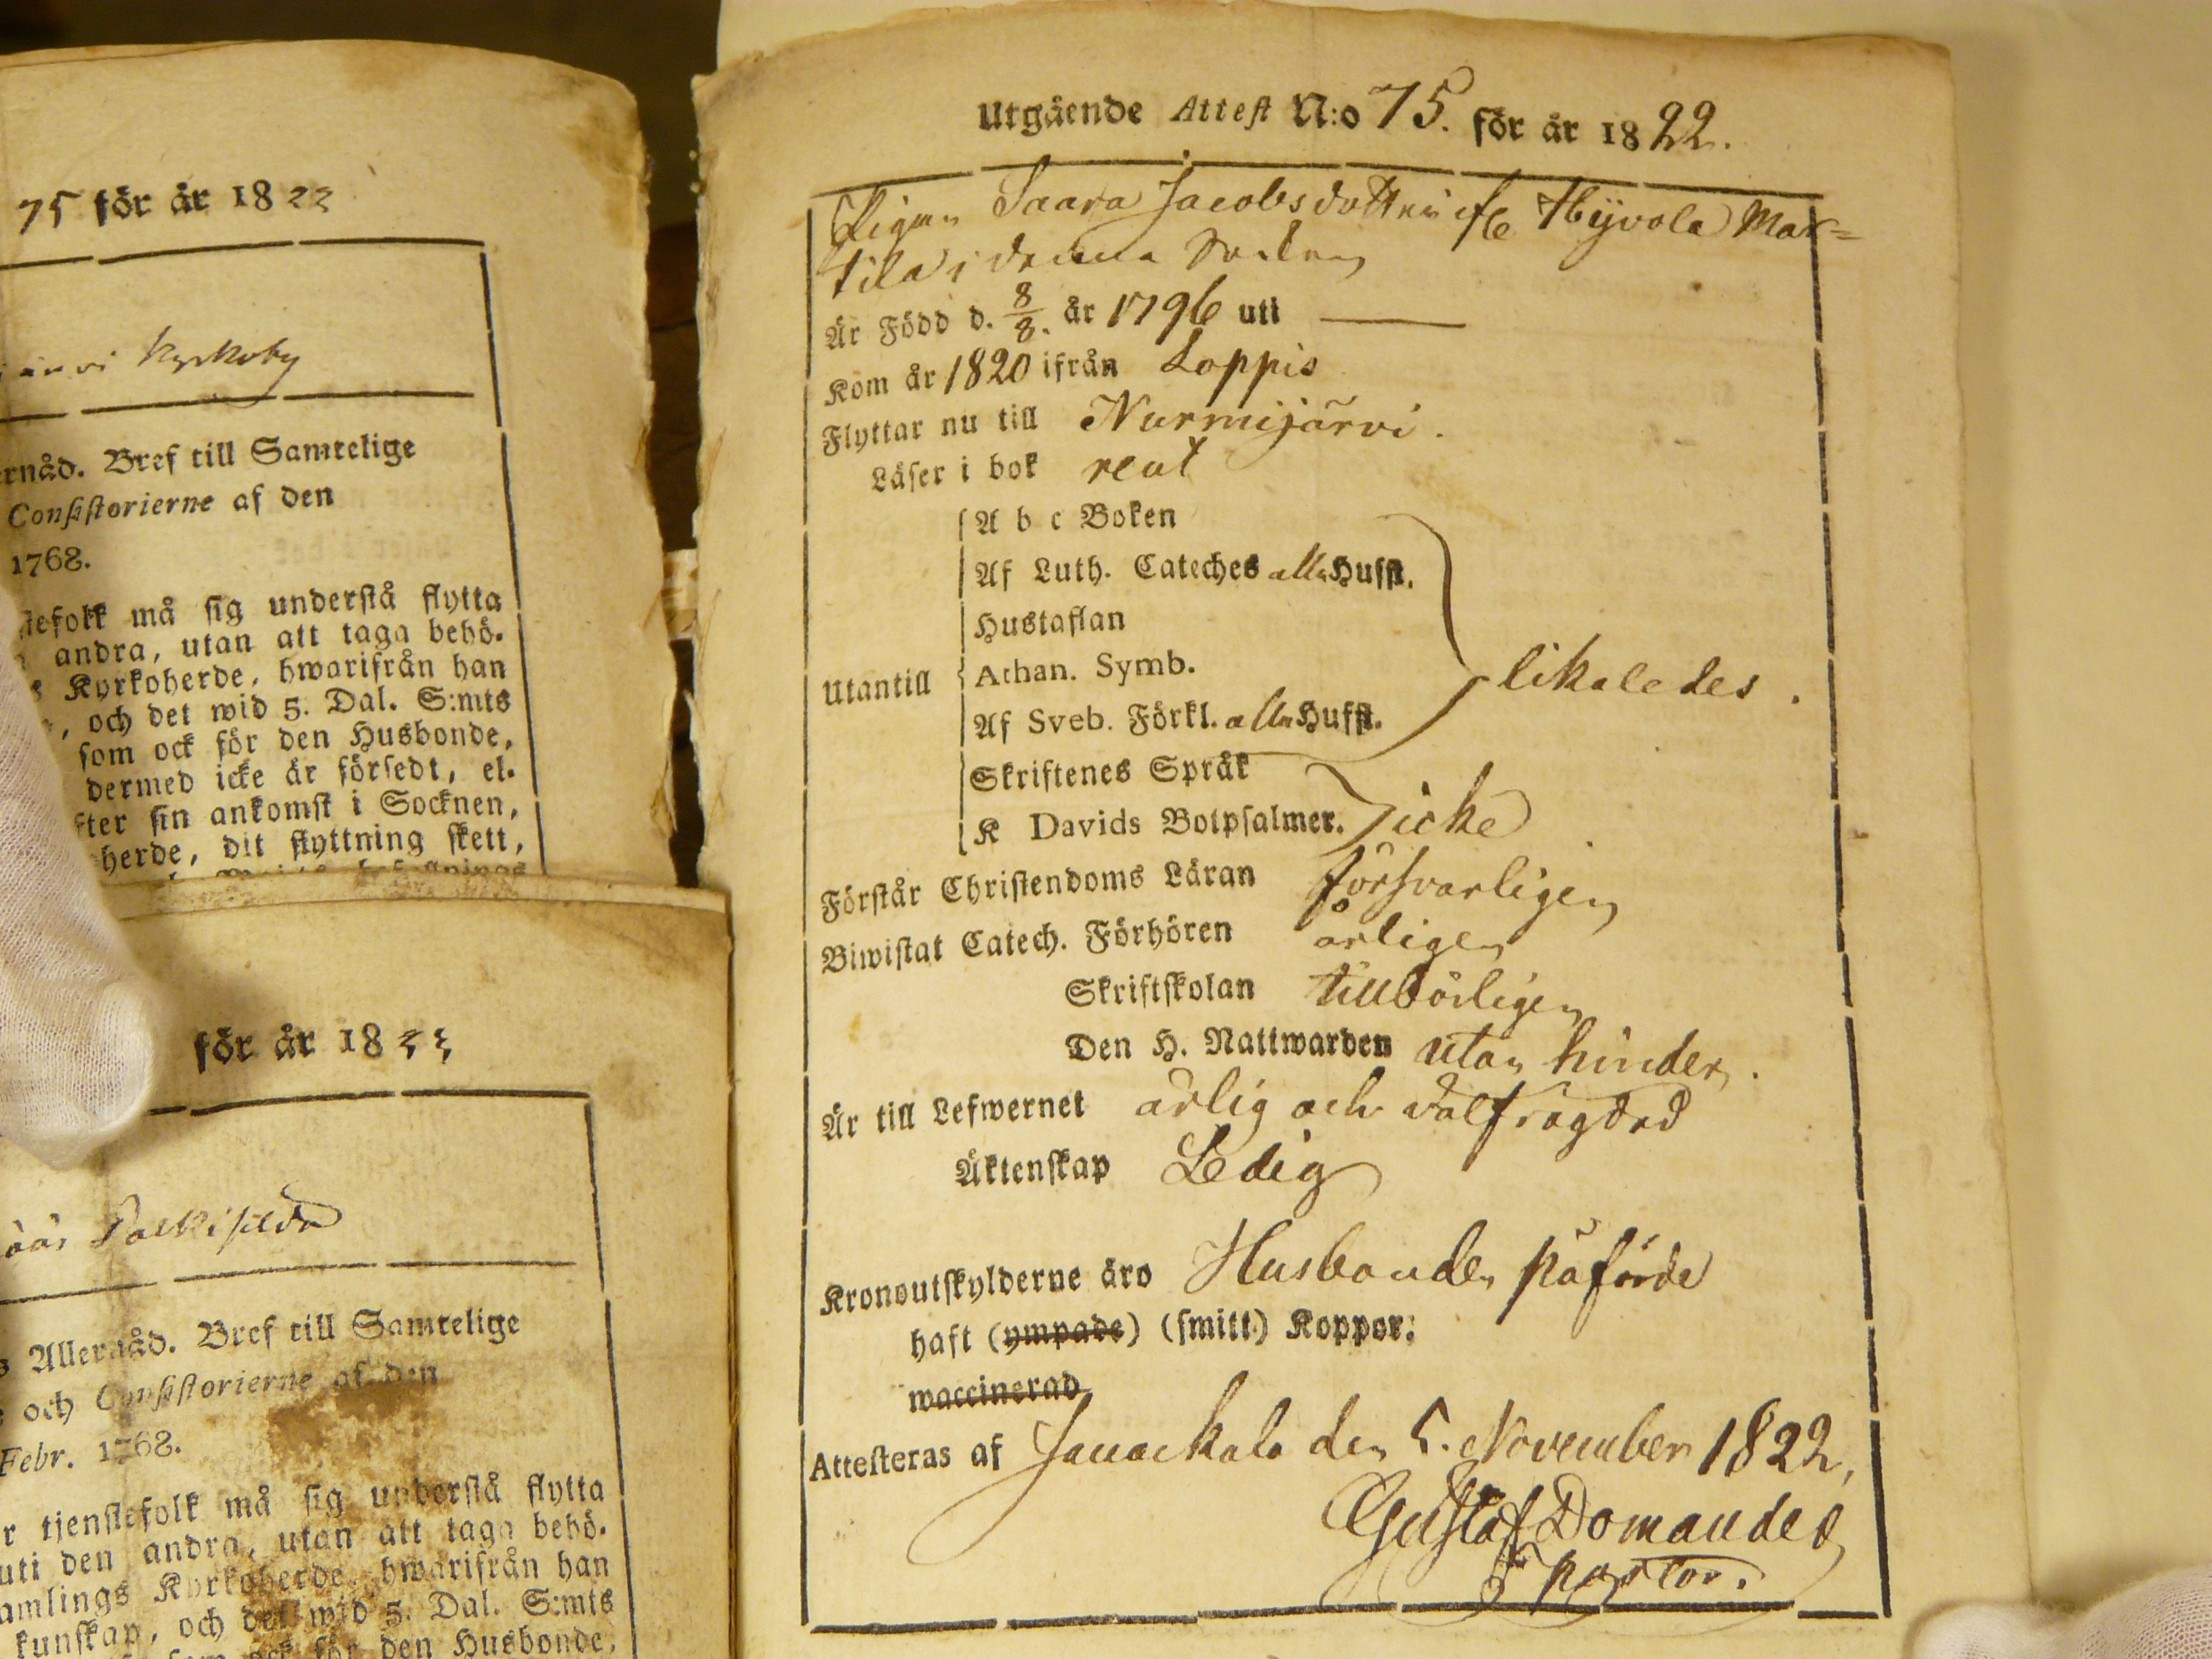 75 för år 1822
Kyrkoby
Bref till Samtelige
Consistorierne af den
1768.
må sig understå flytta
andra, utan att taga behö-
Kyrkoherde, hwarifrån han
, och det wid 5. Dal. S:mts
som ock för den Husbonde,
dermed icke är försedt, el-
sin ankomst i Socknen,
herde, dit flyttning skett,
för år 1822
Allernåd. Bref till Samtelige
och Consistorierne af den
Febr. 1768.
r tjenstefolk må sig understå flytta
uti den andra, utan att taga behö-
amlings Kyrkoherde, hwarifrån han
kunskap, och det wid 5. Dal. S:mts
som ock för den Husbonde,
Utgående Attest N:o 75. för år 1822.
Pigan Saara Jacobsdotter Hyvola Mar=
tila i denna Socken
Är Född d. 8/8. år 1796 uti —
Kom år 1820 ifrån Loppis
Flyttar nu till Nurmijärvi.
Läser i bok rent
A b c Boken
Af Luth. Cateches alla Hufst.
Hustaflan
Utantill Athan. Symb. likaledes.
Af Sveb. Förkl. alla Hufst.
Skriftenes Språk
K Davids Botpsalmer. icke
Förstår Christendoms Läran försvarligen
Biwistat Catech. Förhören årligen
Skriftskolan tillbörligen
Den H. Nattwarden utan hinder.
Är till Lefwernet ärlig och välfrägdad
Äktenskap Ledig
Kronoutskylderne äro Husbonden påförde
haft (ympade) (smitt) Koppor.
waccinerad
Attesteras af Janackala den 5. November 1822,
Gustaf Domander
Pastor.